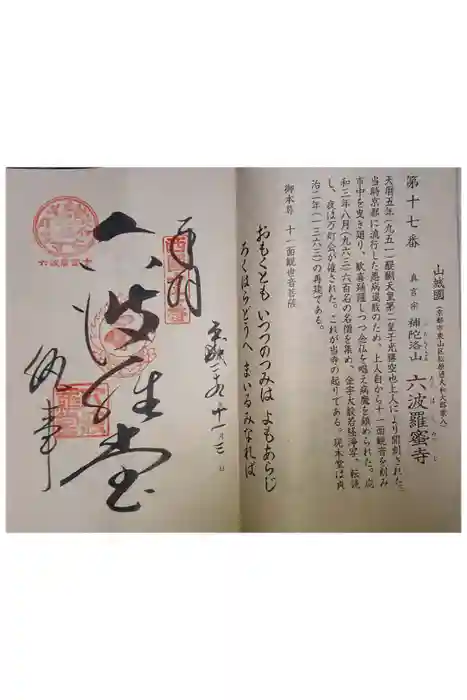 第十七番
山城國
(京都市東山区松原通大和大路東入)
真言宗 補陀洛山 六波羅蜜寺
ふだらくさん
ろくはらみつじ
天暦五年(九五一)醍醐天皇第二皇子光勝空也上人により開創された。
当時京都に流行した悪病退散のため、上人自から十一面観音を刻み
市中を曳き廻り、歓喜踊躍しつつ念仏を唱え病魔を鎮められた。応
和三年八月(九六三)六百名の名僧を集め、金字大般若経浄写、転読
し、夜は万灯会が催された。これが当寺の起りである。現本堂は貞
治二年(一三六三)の再建である。
御本尊 十一面観世音菩薩
おもくとも いつつのつみは よもあらじ
ろくはらどうへ まいるみなれば
奉拝
六波羅堂
十一月三日